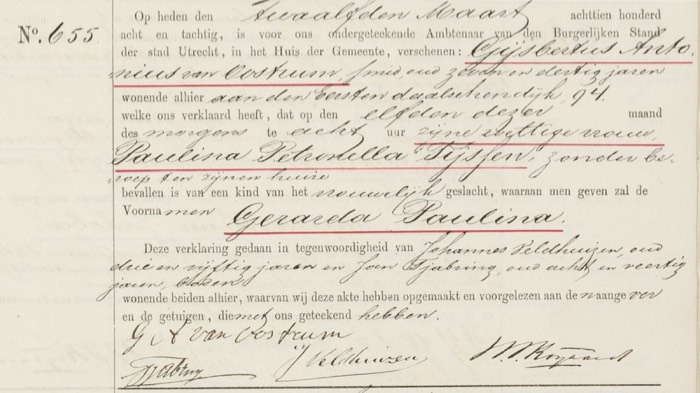 Nº. 655
Op heden den twaalfden Maart achttien honderd
acht en tachtig, is voor ons ondergeteekende Ambtenaar van den Burgerlijken Stand
der stad Utrecht, in het Huis der Gemeente, verschenen: Gijsbertus Anto-
nius van Oostrum, smid, oud zeven en dertig jaren
wonende alhier aan den Eersten daalschendijk, 94.
welke ons verklaard heeft, dat op den elfden dezer maand
des morgens te acht uur zijne wettige vrouw,
Paulina Petronella Tijssen, zonder be-
roep ten zijnen huize
bevallen is van een kind van het vrouwelijk geslacht, waaraan men geven zal de
Voornamen Gerarda Paulina.
Deze verklaring gedaan in tegenwoordigheid van Johannes Veldhuijzen, oud
drie en vijftig jaren en Joen Tjabring, oud acht en veertig
jaren,
wonende beiden alhier, waarvan wij deze akte hebben opgemaakt en voorgelezen aan de aangever
en de getuigen, die met ons geteekend hebben.
G A van Oostrum
Tjabring J Veldhuizen